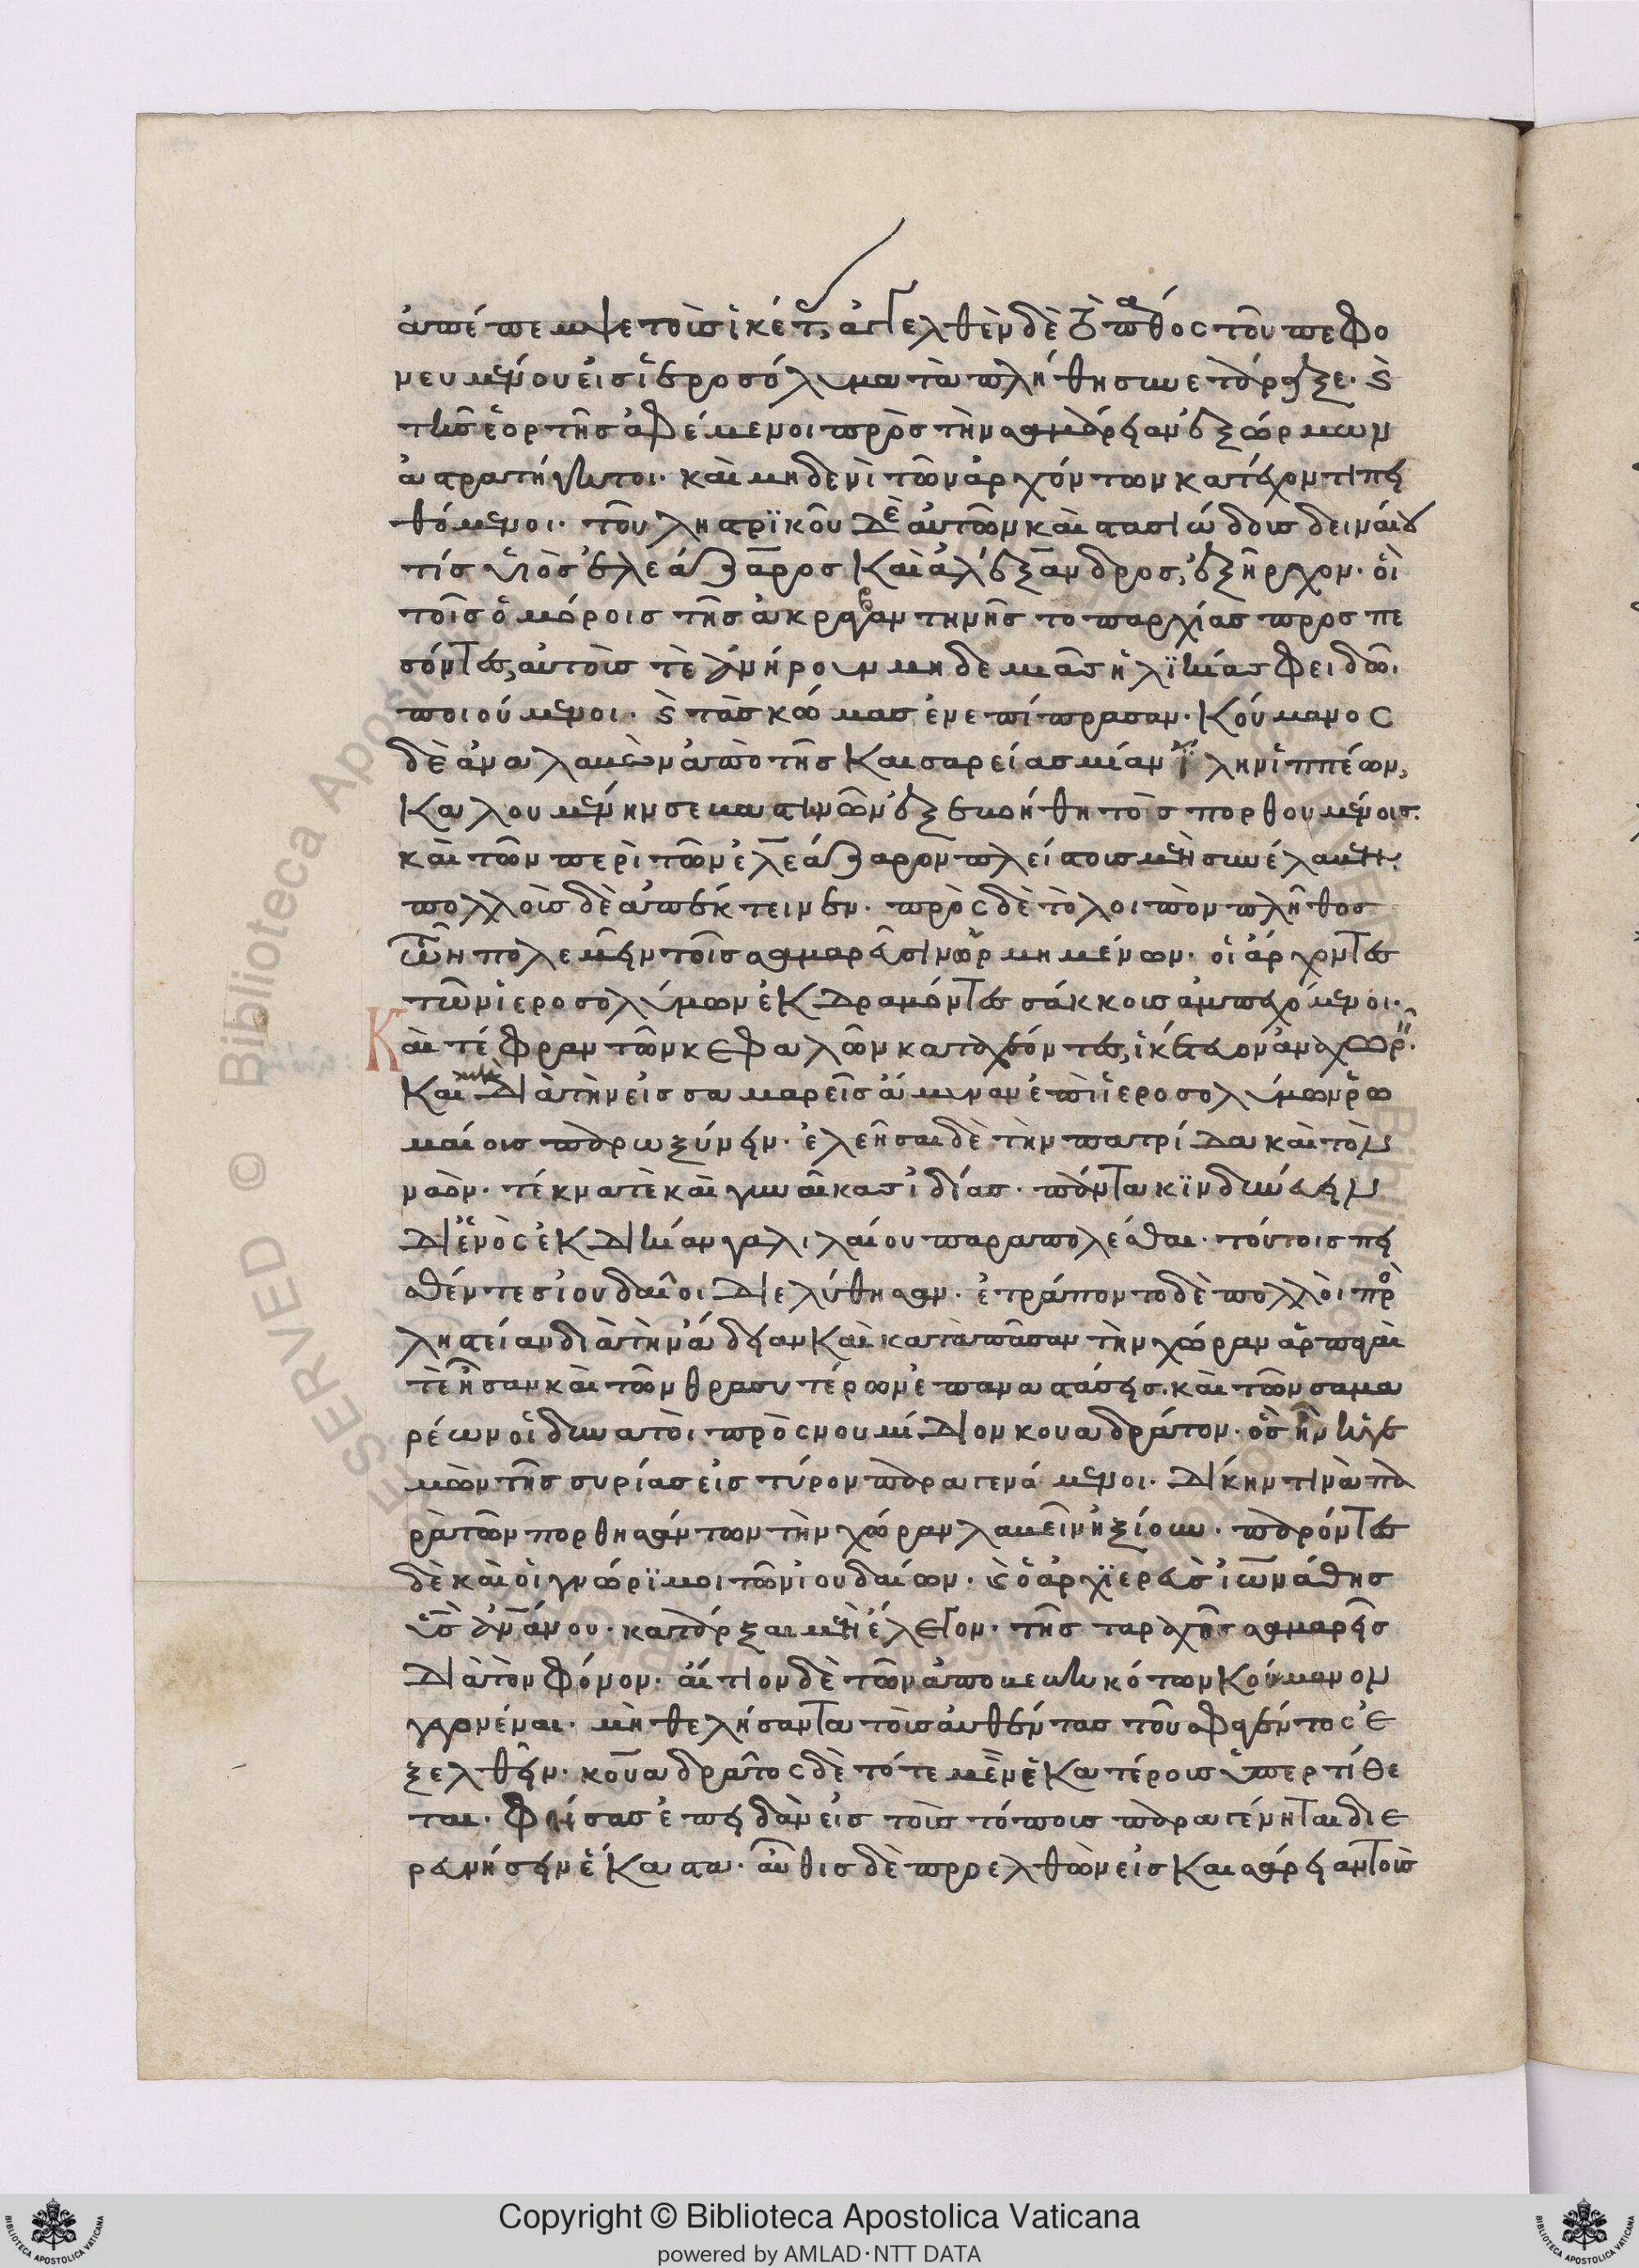 ἀπέπεμψε τοὺς ἱκέτας ἀγγελθὲν δὲ τὸ πάθος τοῦ πεφο
νευμένου εἰς ἱεροσόλυμα τὰ πλήθη συνετάραξε· καὶ
τῆς ἑορτῆς ἀφέμενοι πρὸς τὴν σαμάρειαν ἐξώρμων
ἀστρατήγητοι· καὶ μηδενὶ τῶν ἀρχόντων κατέχοντι πει
θόμενοι· τοῦ ληστρϊκοῦ δὲ αὐτῶν καὶ στασιώδους δειναίου
τίς υἱὸς ἐλεάζαρος καὶ ἀλέξανδρος, ἐξῆρχον· οἳ
τοῖς ὁμόροις τῆς ἀκραβαντηνῆς τοπαρχίας προσπε
σόντες, αὐτούς τε ἀνήρουν μηδεμιᾶς ἡλϊκίας φειδὼ
ποιούμενοι· καὶ τὰς κώμας ἐνεπίπρασαν· κούμανος
δὲ ἀναλαβὼν ἀπὸ τῆς καισαρείας μίαν ἴλην ἱππέων,
καλουμένην σεβαστηνῶν ἐξεβοήθη τοῖς πορθουμένοις·
καὶ τῶν περὶ τὸν ἐλεάζαρον πλείστους μὲν συνέλαβε·
πολλοὺς δὲ ἀπέκτεινεν· πρὸς δὲ τὸ λοιπὸν πλῆθος
τῶν πολεμεῖν τοῖς σαμαρεῦσιν ὡρμημένων· οἱ ἄρχοντες
τῶν ἱεροσολύμων ἐκδραμόντες σάκκοις ἀμπεχόμενοι·
καὶ τέφραν τῶν κεφαλῶν καταχέοντες, ἱκέτευον ἀναχωρεῖν·
καὶ μὴ διὰ τὴν εἰς σαμαρεῖς ἄμυναν ἐπὶ ἱεροσολύμων ῥω
μαίοις παροξύνειν· ἐλεῆσαι δὲ τὴν πατρίδα καὶ τὸν
ναόν· τέκνα τὲ καὶ γυναῖκας ἰδίας· πάντα κϊνδυνεύειν
δι' ἑνὸς ἐκδικίαν γαλιλαίου παραπολέσθαι· τούτοις πει
σθέντες ἰουδαῖοι διελύθησαν· ἐτράποντο δὲ πολλοὶ πρὸς
ληστείαν διὰ τὴν ἄδειαν καὶ κατὰ πᾶσαν τὴν χώραν ἁρπαγαί
τε ἦσαν καὶ τῶν θρασυτέρων ἐπαναστάσεις· καὶ τῶν σαμα
ρέων οἱ δυνατοὶ πρὸς νουμίδιον κουαδράτον· ὃς ἦν ἡγε
μὼν τῆς συρίας εἰς τύρον παραγενάμενοι· δίκην τινὰ πα
ρὰ τῶν πορθησάντων τὴν χώραν λαβεῖν ἠξίουν· παρόντες
δὲ καὶ οἱ γνώρϊμοι τῶν ἰουδαίων· καὶ ὁ ἀρχϊερεὺς ἰωνάθης
υἱὸς ἀνάνου· κατάρξαι μὲν ἔλεγον· τῆς ταραχῆς σαμαρεῖς
διὰ τὸν φόνον· αἴτιον δὲ τῶν ἀποβεβηκότων κούμανον
γεγονέναι· μὴ θελήσαντα τοὺς αὐθέντας τοῦ σφαγέντος ἐ
ξελθεῖν· κουαδράτος δὲ τότε μὲν ἑκατέρους ὑπερτίθε
ται· φήσας ἐπειδὰν εἰς τοὺς τόπους παραγένηται διε
ρευνήσειν ἕκαστα· αὖθις δὲ προελθὼν εἰς καισάρειαν τοὺς
Copyright © Biblioteca Apostolica Vaticana
powered by AMLAD·NTT DATA